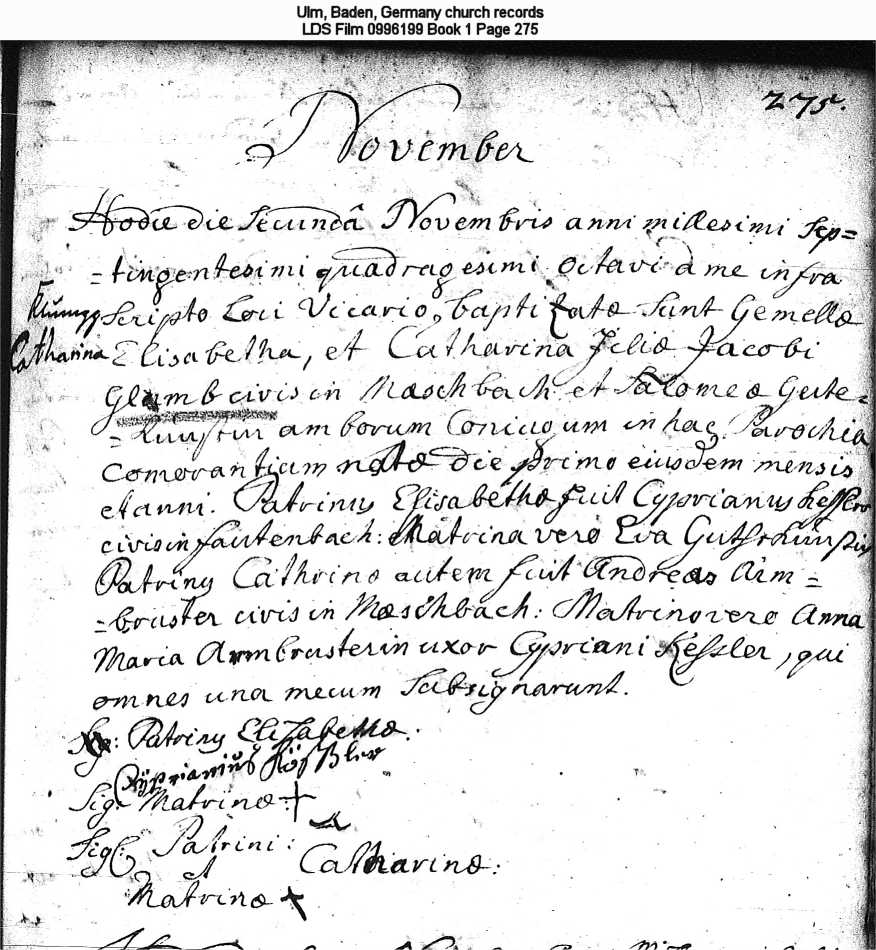 Ulm, Baden, Germany church records
LDS Film 0996199 Book 1 Page 275
275.
November
Hodie die Secunda Novembris anni millesimi Sep=
=tingentesimi quadragesimi octavi a me infra
Scripto Loci Vicario, baptizatæ Sunt Gemellæ
Klumpp
Catharina
Elisabetha, et Catharina filiæ Jacobi
civis in Mæschbach et Salomeæ
amborum Coniugum in hac Parochia
Comorantium natæ die primo eiusdem mensis
et anni. Patrinus Elisabethæ fuit Cyprianus Kessler
civis in fautenbach: Matrina vero Eva
Patrinus Cathrinæ autem fuit Andreas Arm=
=bruster civis in Mæschbach: Matrina vero Anna
Maria Armbrusterin uxor Cypriani Kessler, qui
omnes una mecum Subsignarunt.
Sig: Patrinus Elizabethæ:
Sig: Matrinæ +
Sig: Patrini:
et
Catharinæ:
Matrinæ +